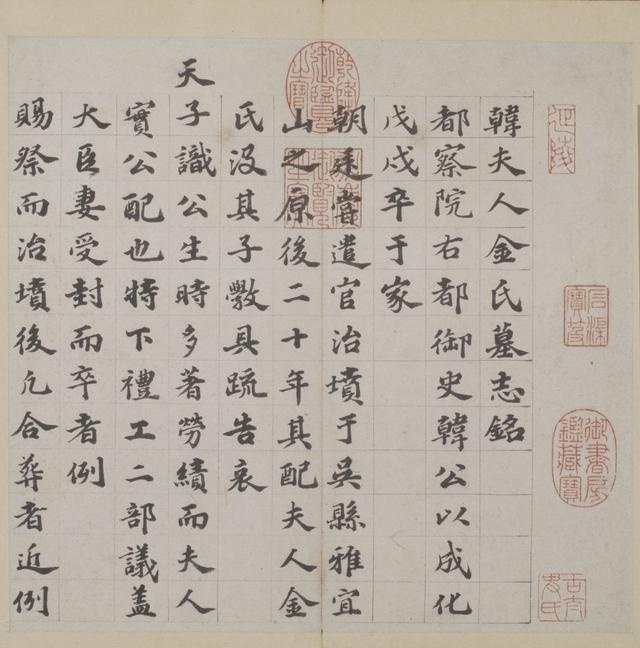 延陵
石渠寶笈
御書房鑑藏寶
乾隆御覽之寶
韓夫人金氏墓志銘
都察院右都御史韓公以成化
戊戌卒于家
朝廷嘗遣官治墳于吳縣雅宜
山之原後二十年其配夫人金
氏沒其子斅具疏告哀
天子識公生時多著勞績而夫人
實公配也特下禮工二部議蓋
大臣妻受封而卒者例
賜祭而治墳後凡合葬者近例